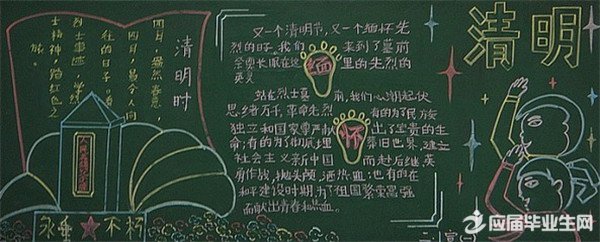 清明时
四月，盎然春意，
四月，最令人向
往的日子。看
烈士事迹，学烈
士精神，踏红色之
旅。
人民英雄纪念碑
永垂不朽
又一个清明节，又一个缅怀先
烈的日子。我们来到了墓前
长眠在这里的先烈的
英灵
站在烈士墓前，我们心潮起伏
思绪万千，革命先烈有的为了民族
独立和国家尊严献出了宝贵的生
命；有的为了彻底埋葬旧世界，建立
社会主义新中国而赴后继，英
勇作战，抛头颅，洒热血；也有的在
和平建设时期，为了祖国繁荣富强
而献出青春和热血。
缅
怀
清明
应届毕业生网